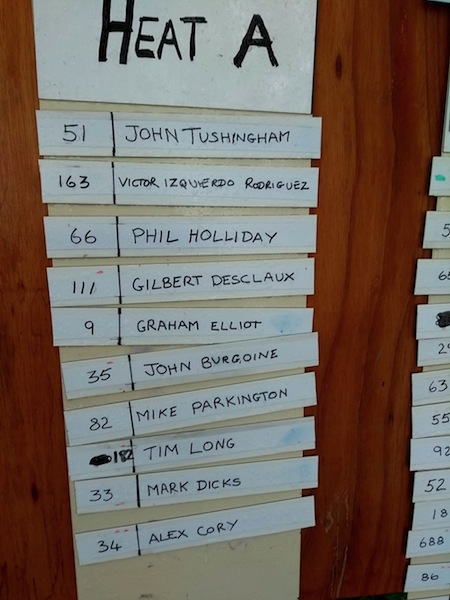 HEAT A
51 JOHN TUSHINGHAM
163 VICTOR IZQUIERDO RODRIGUEZ
66 PHIL HOLLIDAY
111 GILBERT DESCLAUX
9 GRAHAM ELLIOT
35 JOHN BURGOINE
82 MIKE PARKINGTON
182 TIM LONG
33 MARK DICKS
34 ALEX CORY
63
55
92
52
18
688
86